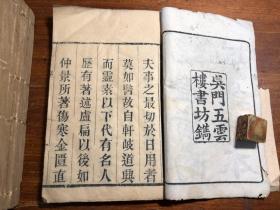 吳門五雲
樓書坊鐫
夫事之最切於日用者
莫如醫故自軒岐道興
而靈素以下代有名人
歷有著述盧扁以後如
仲景所著傷寒金匱直